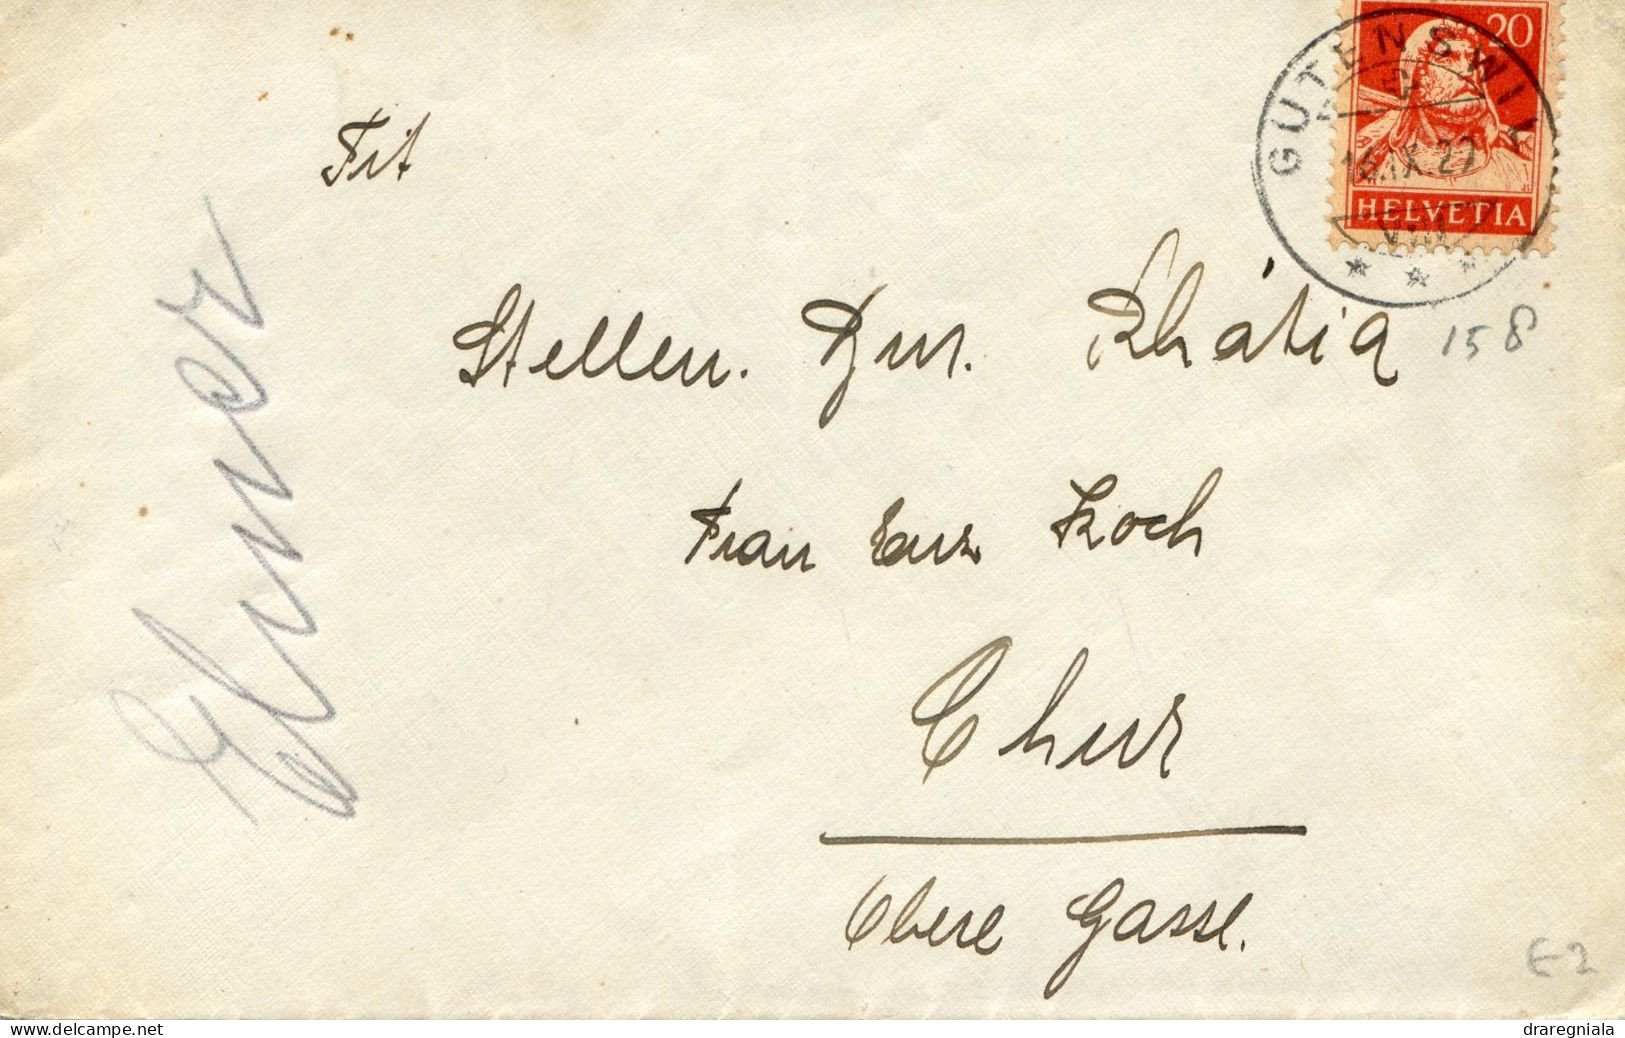 20
HELVETIA
GUTENSWIL
16.IX.27
Tit
Stellen. Bur. Rhätia
158
Frau Koch
Chur
Obere Gasse.
Elmer
E-2
www.delcampe.net
draregniala